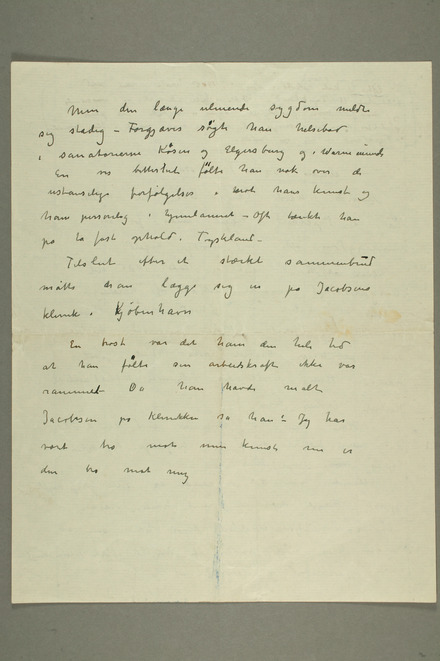 Men den længe ulmende sygdom meldte
sig stadig – Forgjæves søgte han helsebod
i sanatorierne Kösen og Elgersburg og i Warnemünde
En vis bitterhet følte han nok over de
ustanselige forfølgelser i mot hans kunst og
ham personlig i hjemlandet – Ofte tænkte han
på ta fast ophold i Tyskland –
Tilslut efter et stærkt sammenbrud
måtte han lægge sig in på Jacobsons
klinik i Kjøbenhavn
En trøst var det ham den hele tid
at han følte sin arbeidskraft ikke var
rammet – Da han havde malt
Jacobson på klinikken sa han: Jeg har
vært tro mot min kunst nu er
den tro mot mig